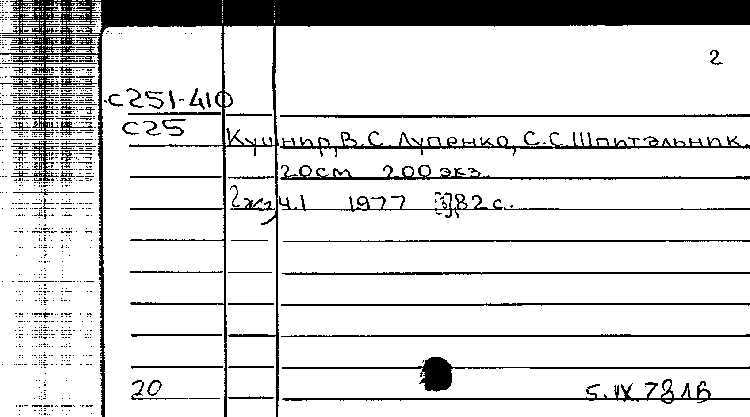 2
с251-410
с25
Кушнир, В.С. Лупенко, С.С. Шпитальник.
20см 200 экз.
2экз ч.1 1977 [3],82 с.
20
5.IX.78